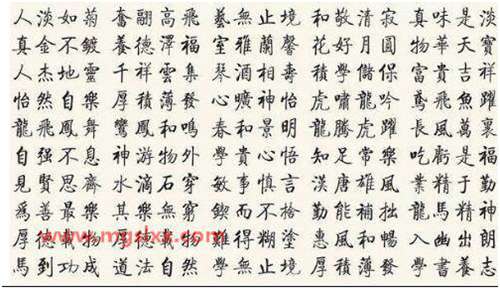 人淡如菊 奮翮高飛 藝無止境 和敬清寂 真味是淡
真金不鍍 養德澤福 室雅蘭馨 花好月圓 物華天寶
人杰地靈 千祥雲集 琴酒相壽 積學儲保 富貴吉祥
怡然自樂 厚積薄發 心曠神怡 虎嘯龍吟 鳶飛魚躍
龍飛鳳舞 鸞鳳和鳴 春和景明 龍騰虎躍 長風萬裏
自强不息 神游物外 學貴心悟 知足常樂 吃虧是福
見賢思齊 水滴石穿 敏事慎言 漢唐雄風 業精于勤
爲善最樂 其樂無窮 鍥而不捨 勤能補拙 龍馬精神
厚德載物 難得糊塗 惠風和暢 入幽出朗
馬到功成 道法自然 學無止境 厚積薄發 學書養志